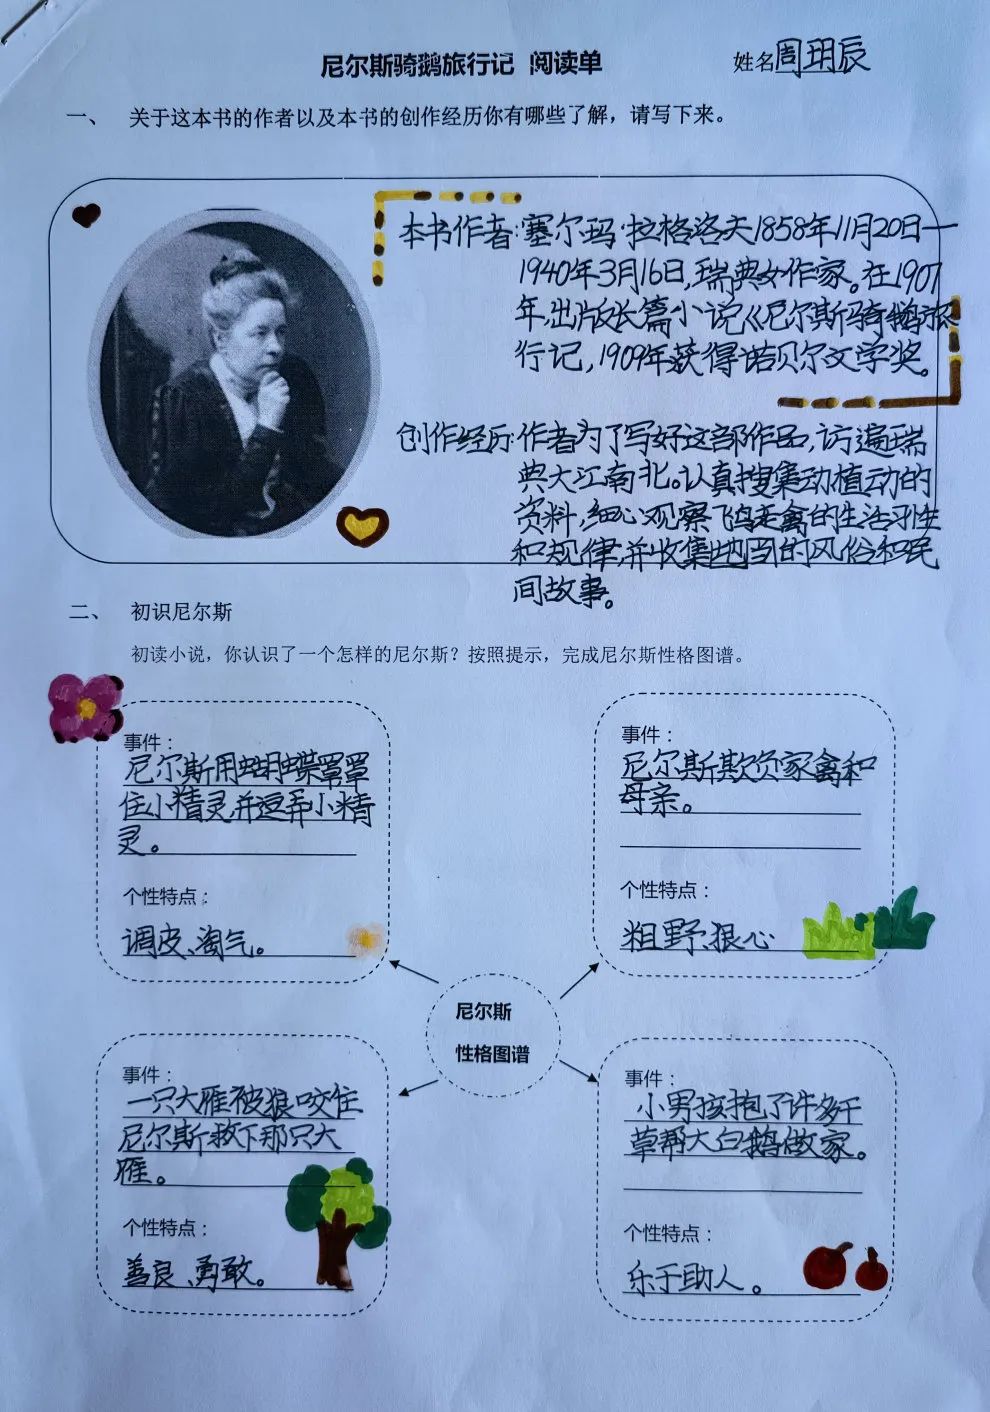 尼尔斯骑鹅旅行记 阅读单
姓名周玥辰
一、 关于这本书的作者以及本书的创作经历你有哪些了解，请写下来。
本书作者：塞尔玛·拉格洛夫1858年11月20日—
1940年3月16日，瑞典女作家。在1907
年，出版长篇小说《尼尔斯骑鹅旅
行记，1909年获得诺贝尔文学奖。
创作经历：作者为了写好这部作品，访遍瑞
典大江南北。认真搜集动植动的
资料，细心观察飞鸟走禽的生活习性
和规律，并收集地当的风俗和民
间故事。
二、 初识尼尔斯
初读小说，你认识了一个怎样的尼尔斯？按照提示，完成尼尔斯性格图谱。
事件：
尼尔斯用蝴蝶罩罩
住小精灵，并逗弄小精
灵。
个性特点：
调皮、淘气。
事件：
尼尔斯欺负家禽和
母亲。
个性特点：
粗野、狠心
尼尔斯
性格图谱
事件：
一只大雁被狼咬住
尼尔斯救下那只大
雁。
个性特点：
善良、勇敢。
事件：
小男孩抱了许多干
草帮大白鹅做家。
个性特点：
乐于助人。